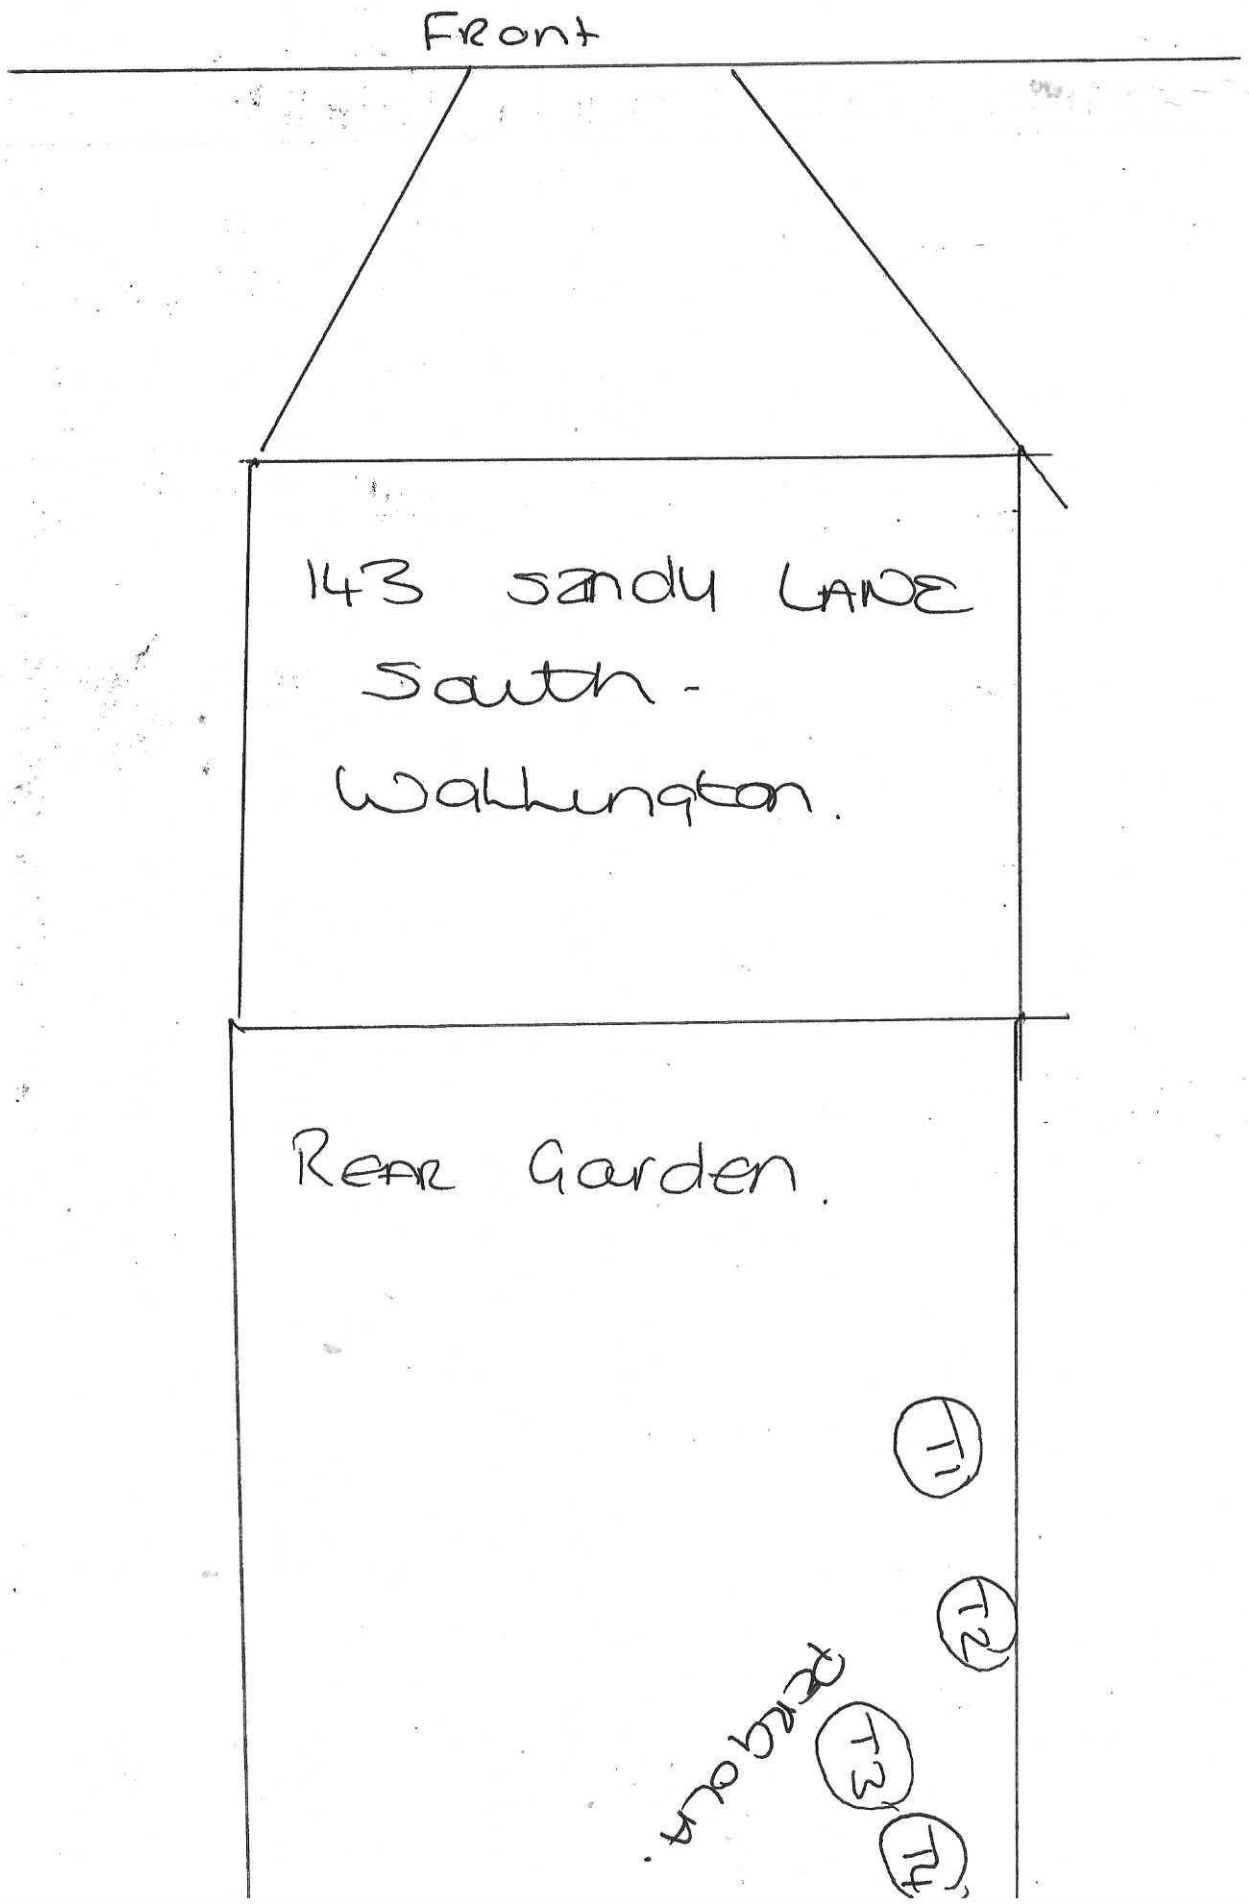 Front
143 Sandy LANE
South -
Wallington.
REAR Garden.
T1
T2
PERGOLA.
T3
T4